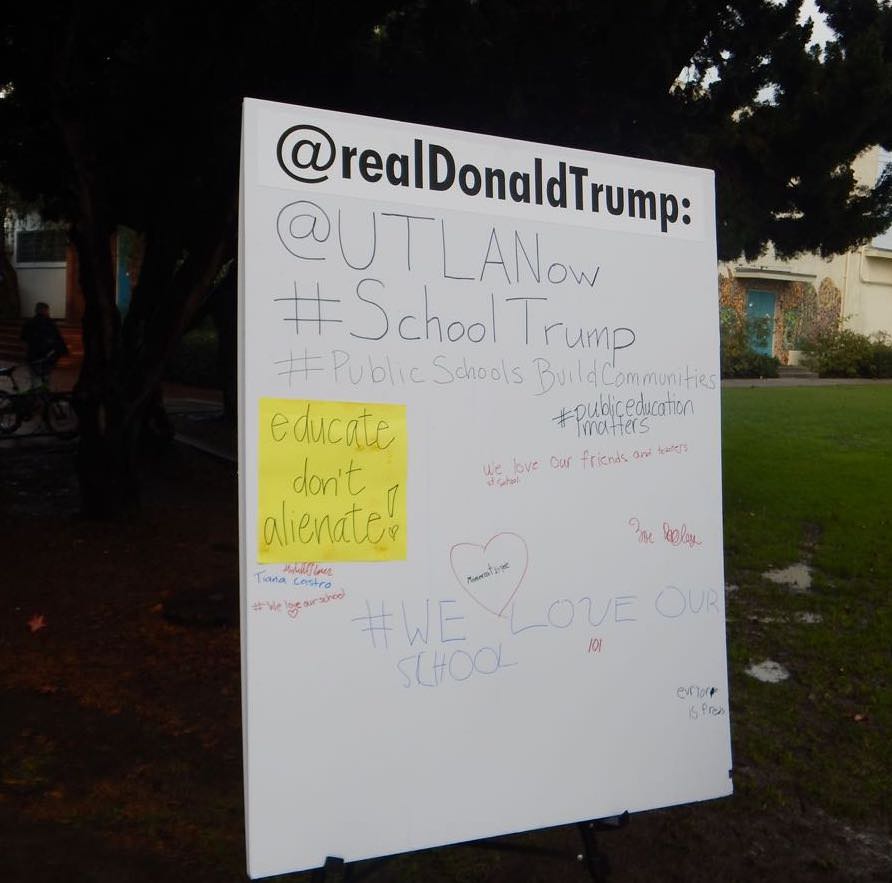 @realDonaldTrump:
@UTLANow
#SchoolTrump
#PublicSchoolsBuildCommunities
#publiceducation
matters
we love our friends and teachers
at school
educate
don't
alienate!
Tiana Castro
#We love our school
#WE LOVE OUR
SCHOOL
101